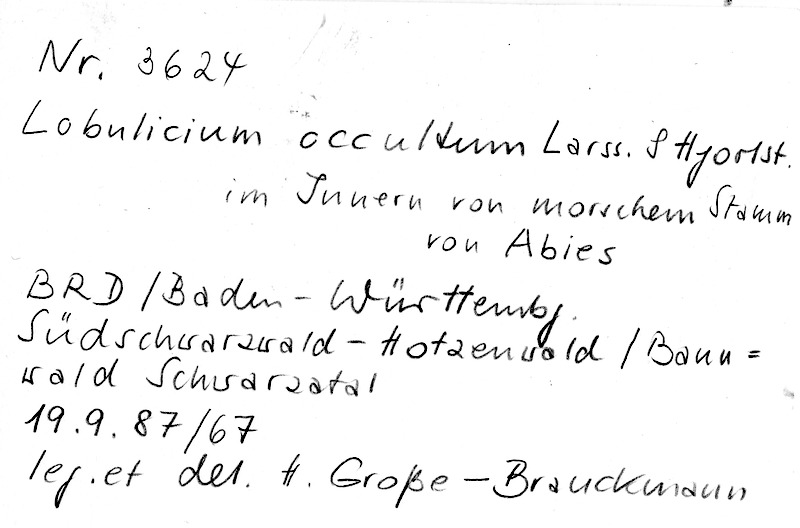 Nr. 3624
Lobulicium occultum Larss. & Hjortst.
im Innern von morschem Stamm
von Abies
BRD / Baden-Württembg.
Südschwarzwald - Hotzenwald / Bann=
wald Schwarzatal
19.9.87/67
leg. et det. H. Große-Brauckmann